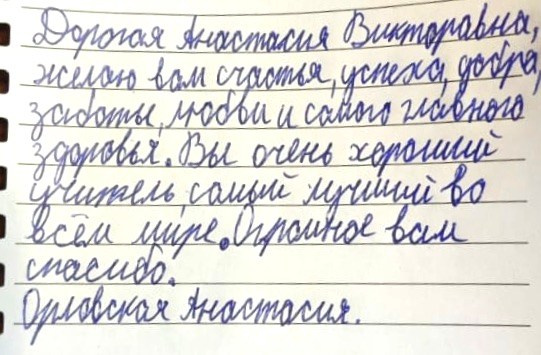 Дорогая Анастасия Викторавна,
желаю вам счастья, успеха, добра,
заботы, любви и самого главного
здоровья. Вы очень хороший
учитель, самый лучший во
всём мире. Огромное вам
спасибо.
Орловская Анастасия.